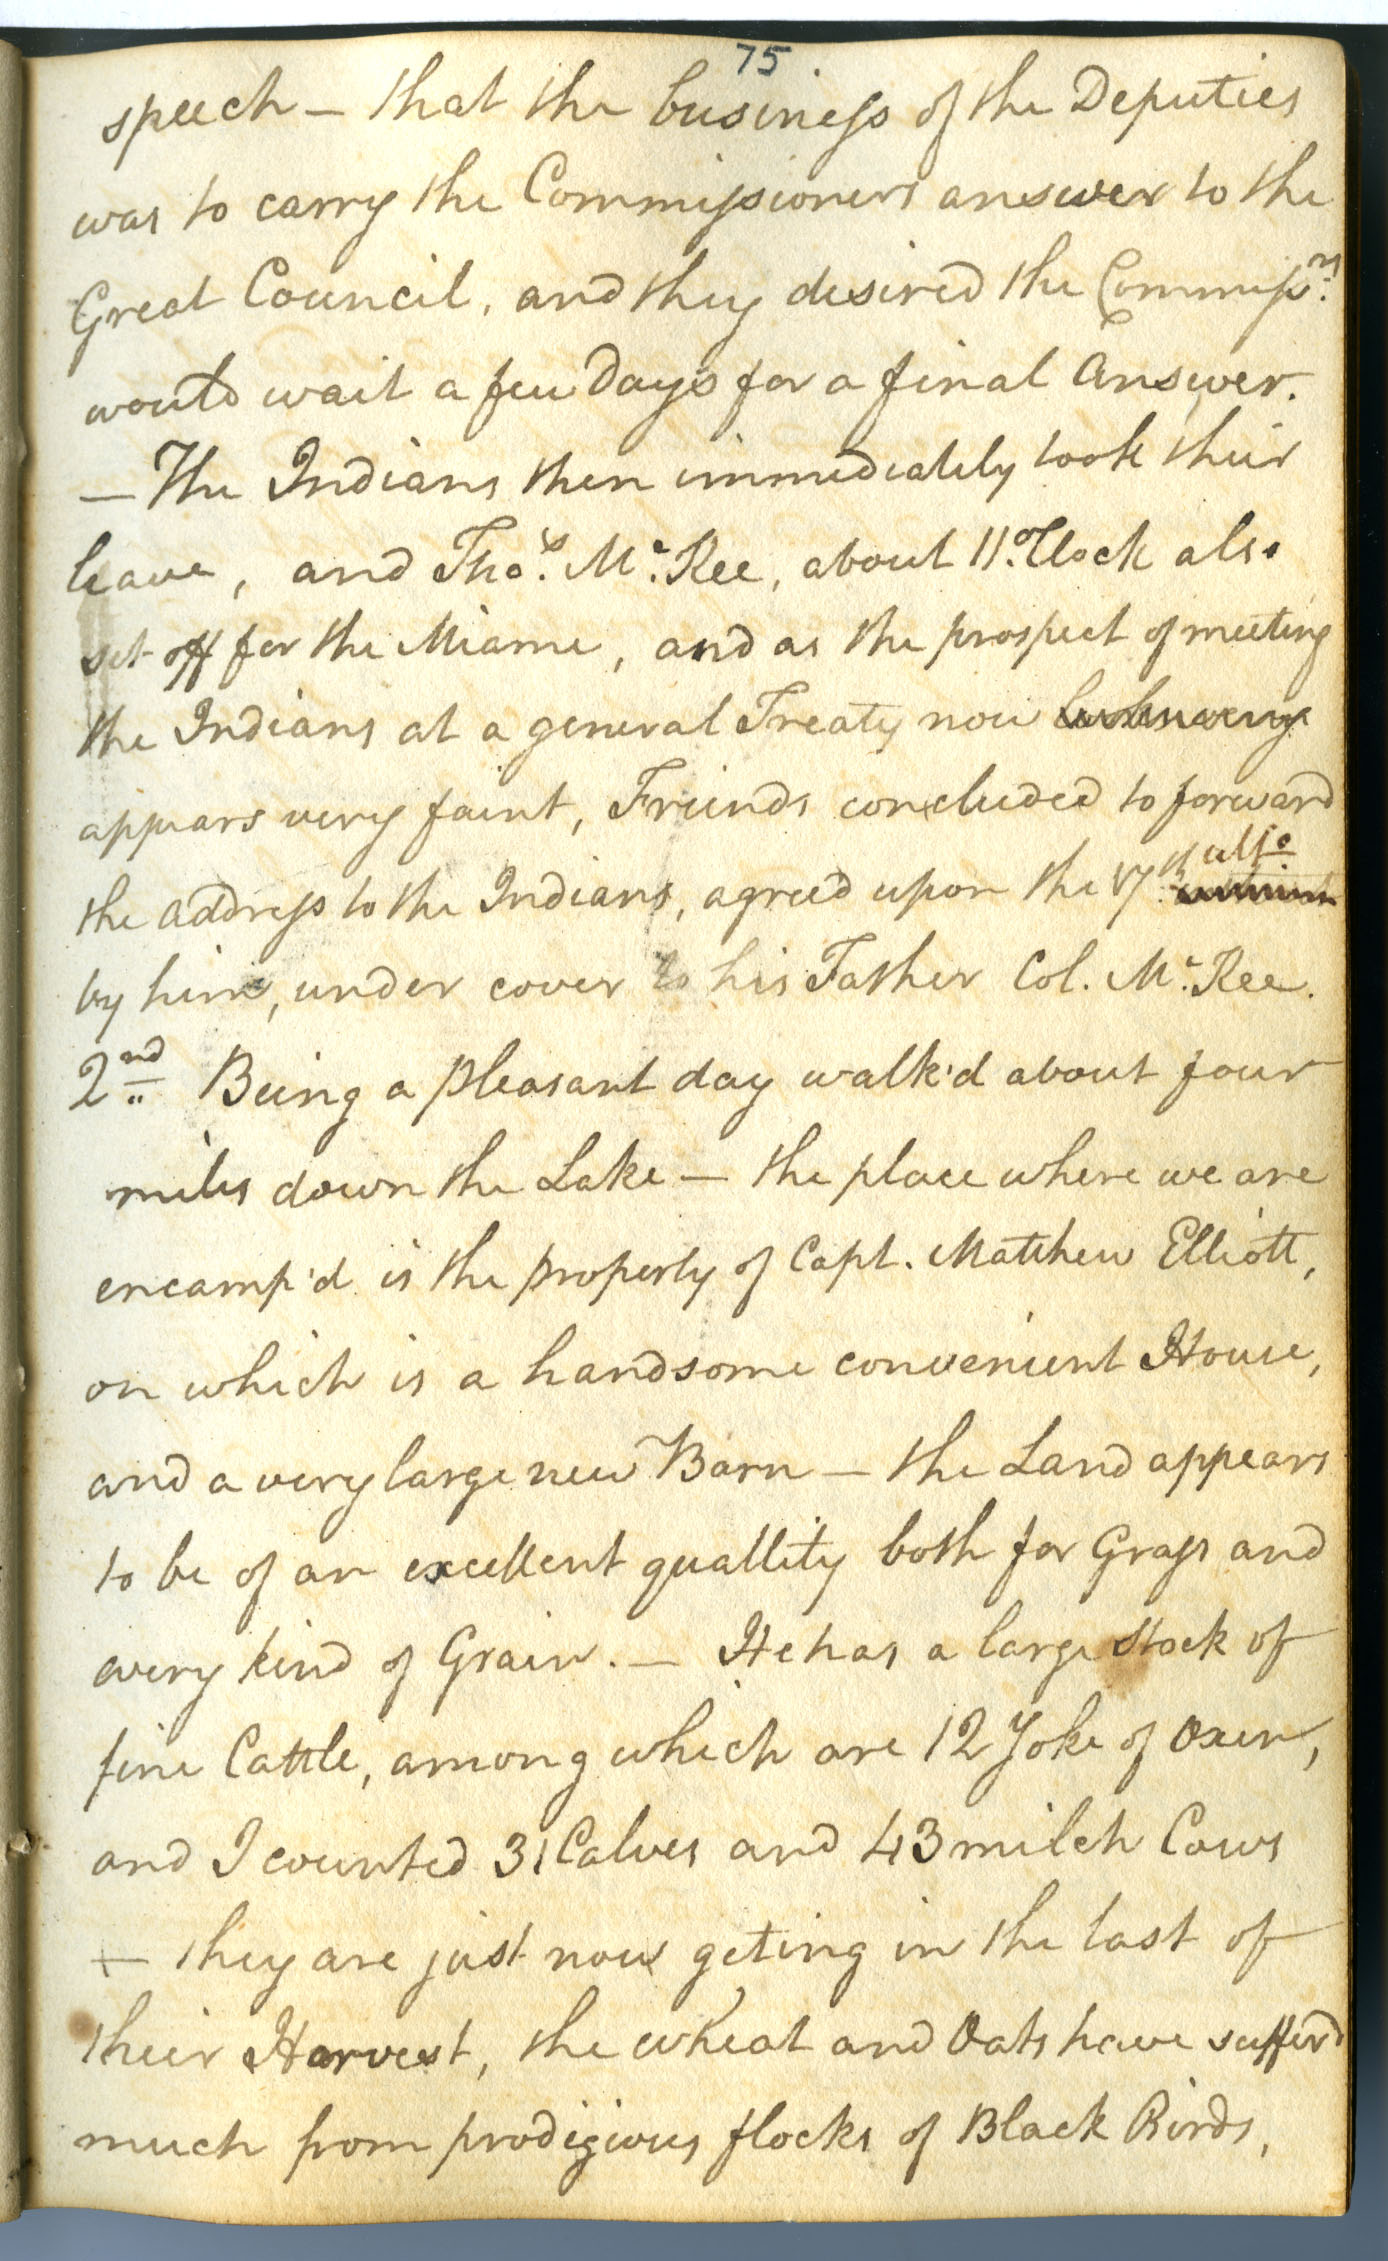 75
speech — that the business of the Deputies
was to carry the Commissioners answer to the
Great Council, and they desired the Commissrs.
would wait a few Days for a final Answer.
— The Indians then immediately took their
leave, and Thos. Mc.Kee, about 11 oClock also
set off for the Miame, and as the prospect of meeting
the Indians at a general Treaty now
appears very faint, Friends concluded to forward
the address to the Indians, agreed upon the 17th. ulto
by him, under cover to his Father Col. Mc.Kee.
2nd Being a pleasant day walk'd about four
miles down the Lake — the place where we are
encamp'd is the property of Capt. Matthew Elliott,
on which is a handsome convenient House,
and a very large new Barn — the Land appears
to be of an excellent quallity both for Grass and
every kind of Grain. — He has a large Stock of
fine Cattle, among which are 12 Yoke of Oxen,
and I counted 31 Calves and 43 milch Cows
— they are just now geting in the last of
their Harvest, the wheat and Oats have sufferd
much from prodigious flocks of Black Birds,